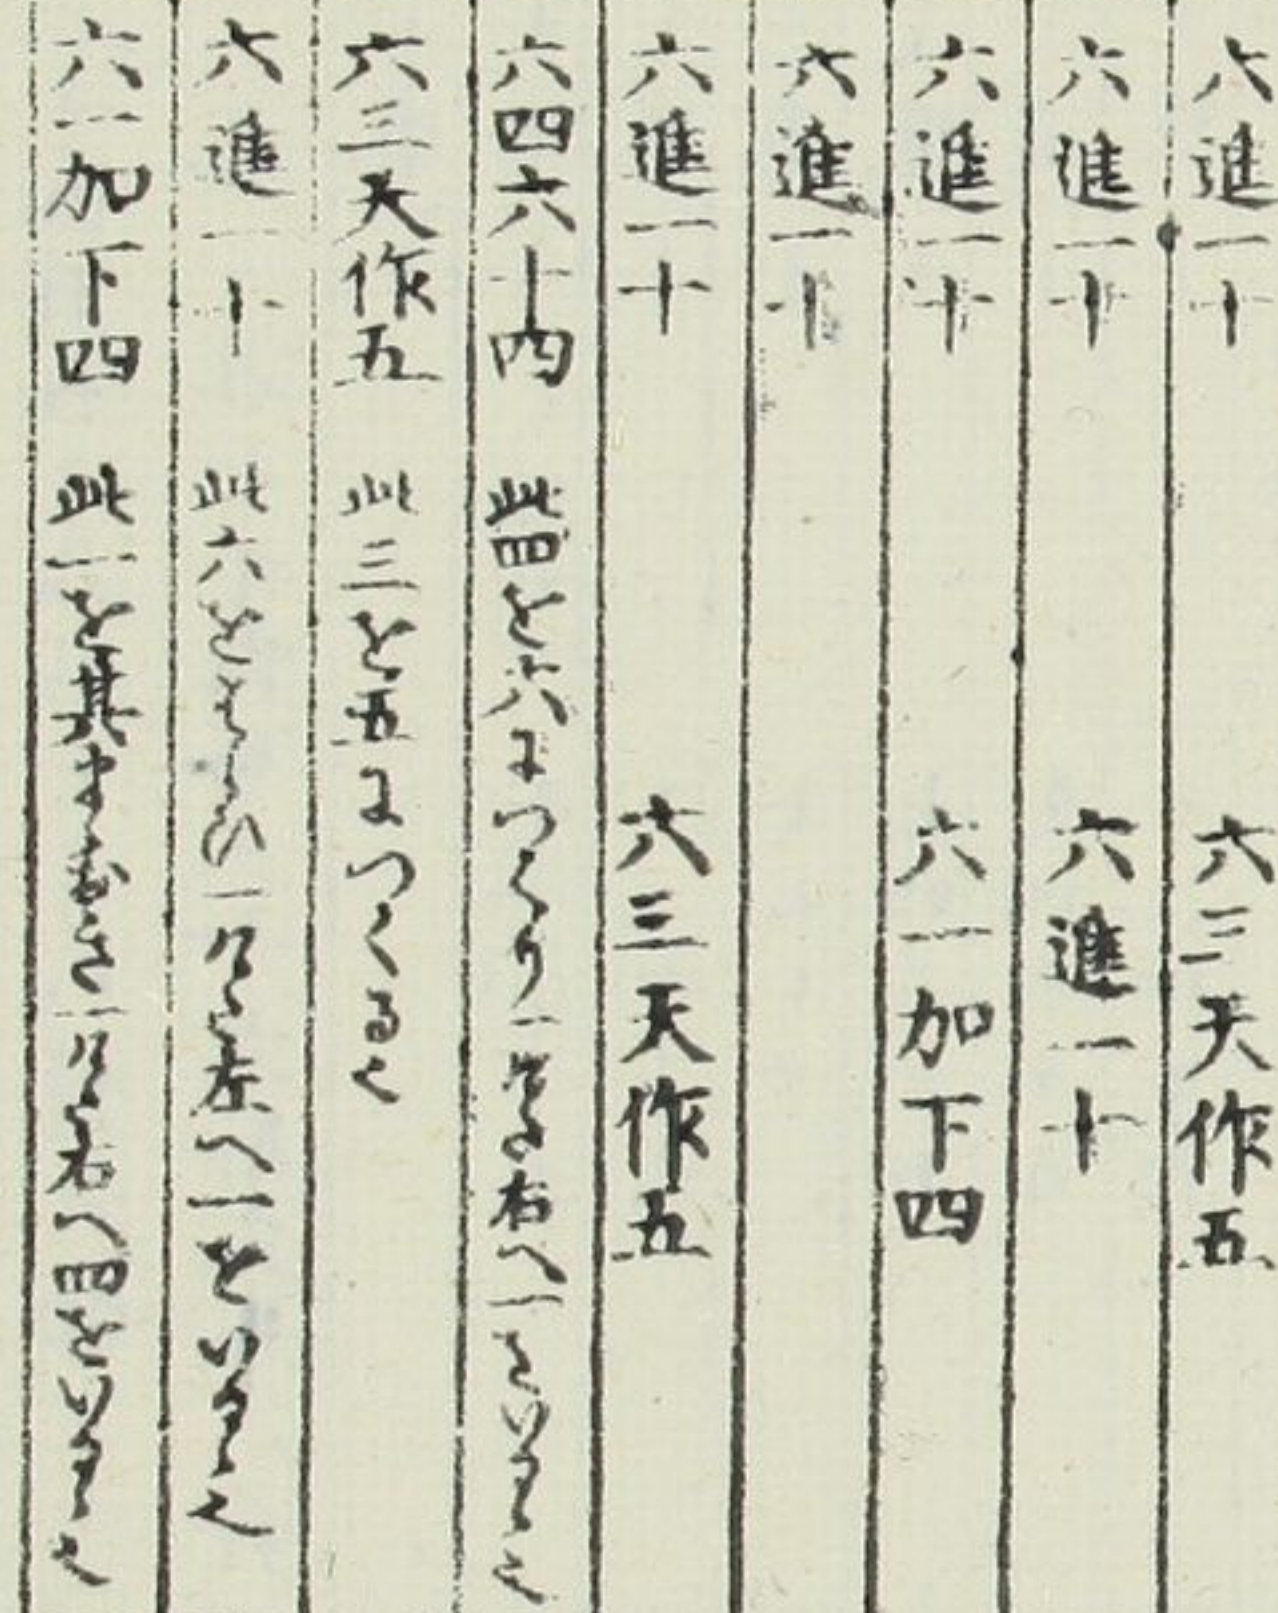 六進一十 六三天作五
六進一十 六進一十
六進一十 六一加下四
六進一十
六進一十 六三天作五
六四六十四 此四を六につくり一けた右へ一をいるゝ也
六三天作五 此三を五につくる也
六進一十 此六をはらひ一けた左へ一をいるゝ也
六一加下四 此一を其まゝおき一けた右へ四をいるゝ也